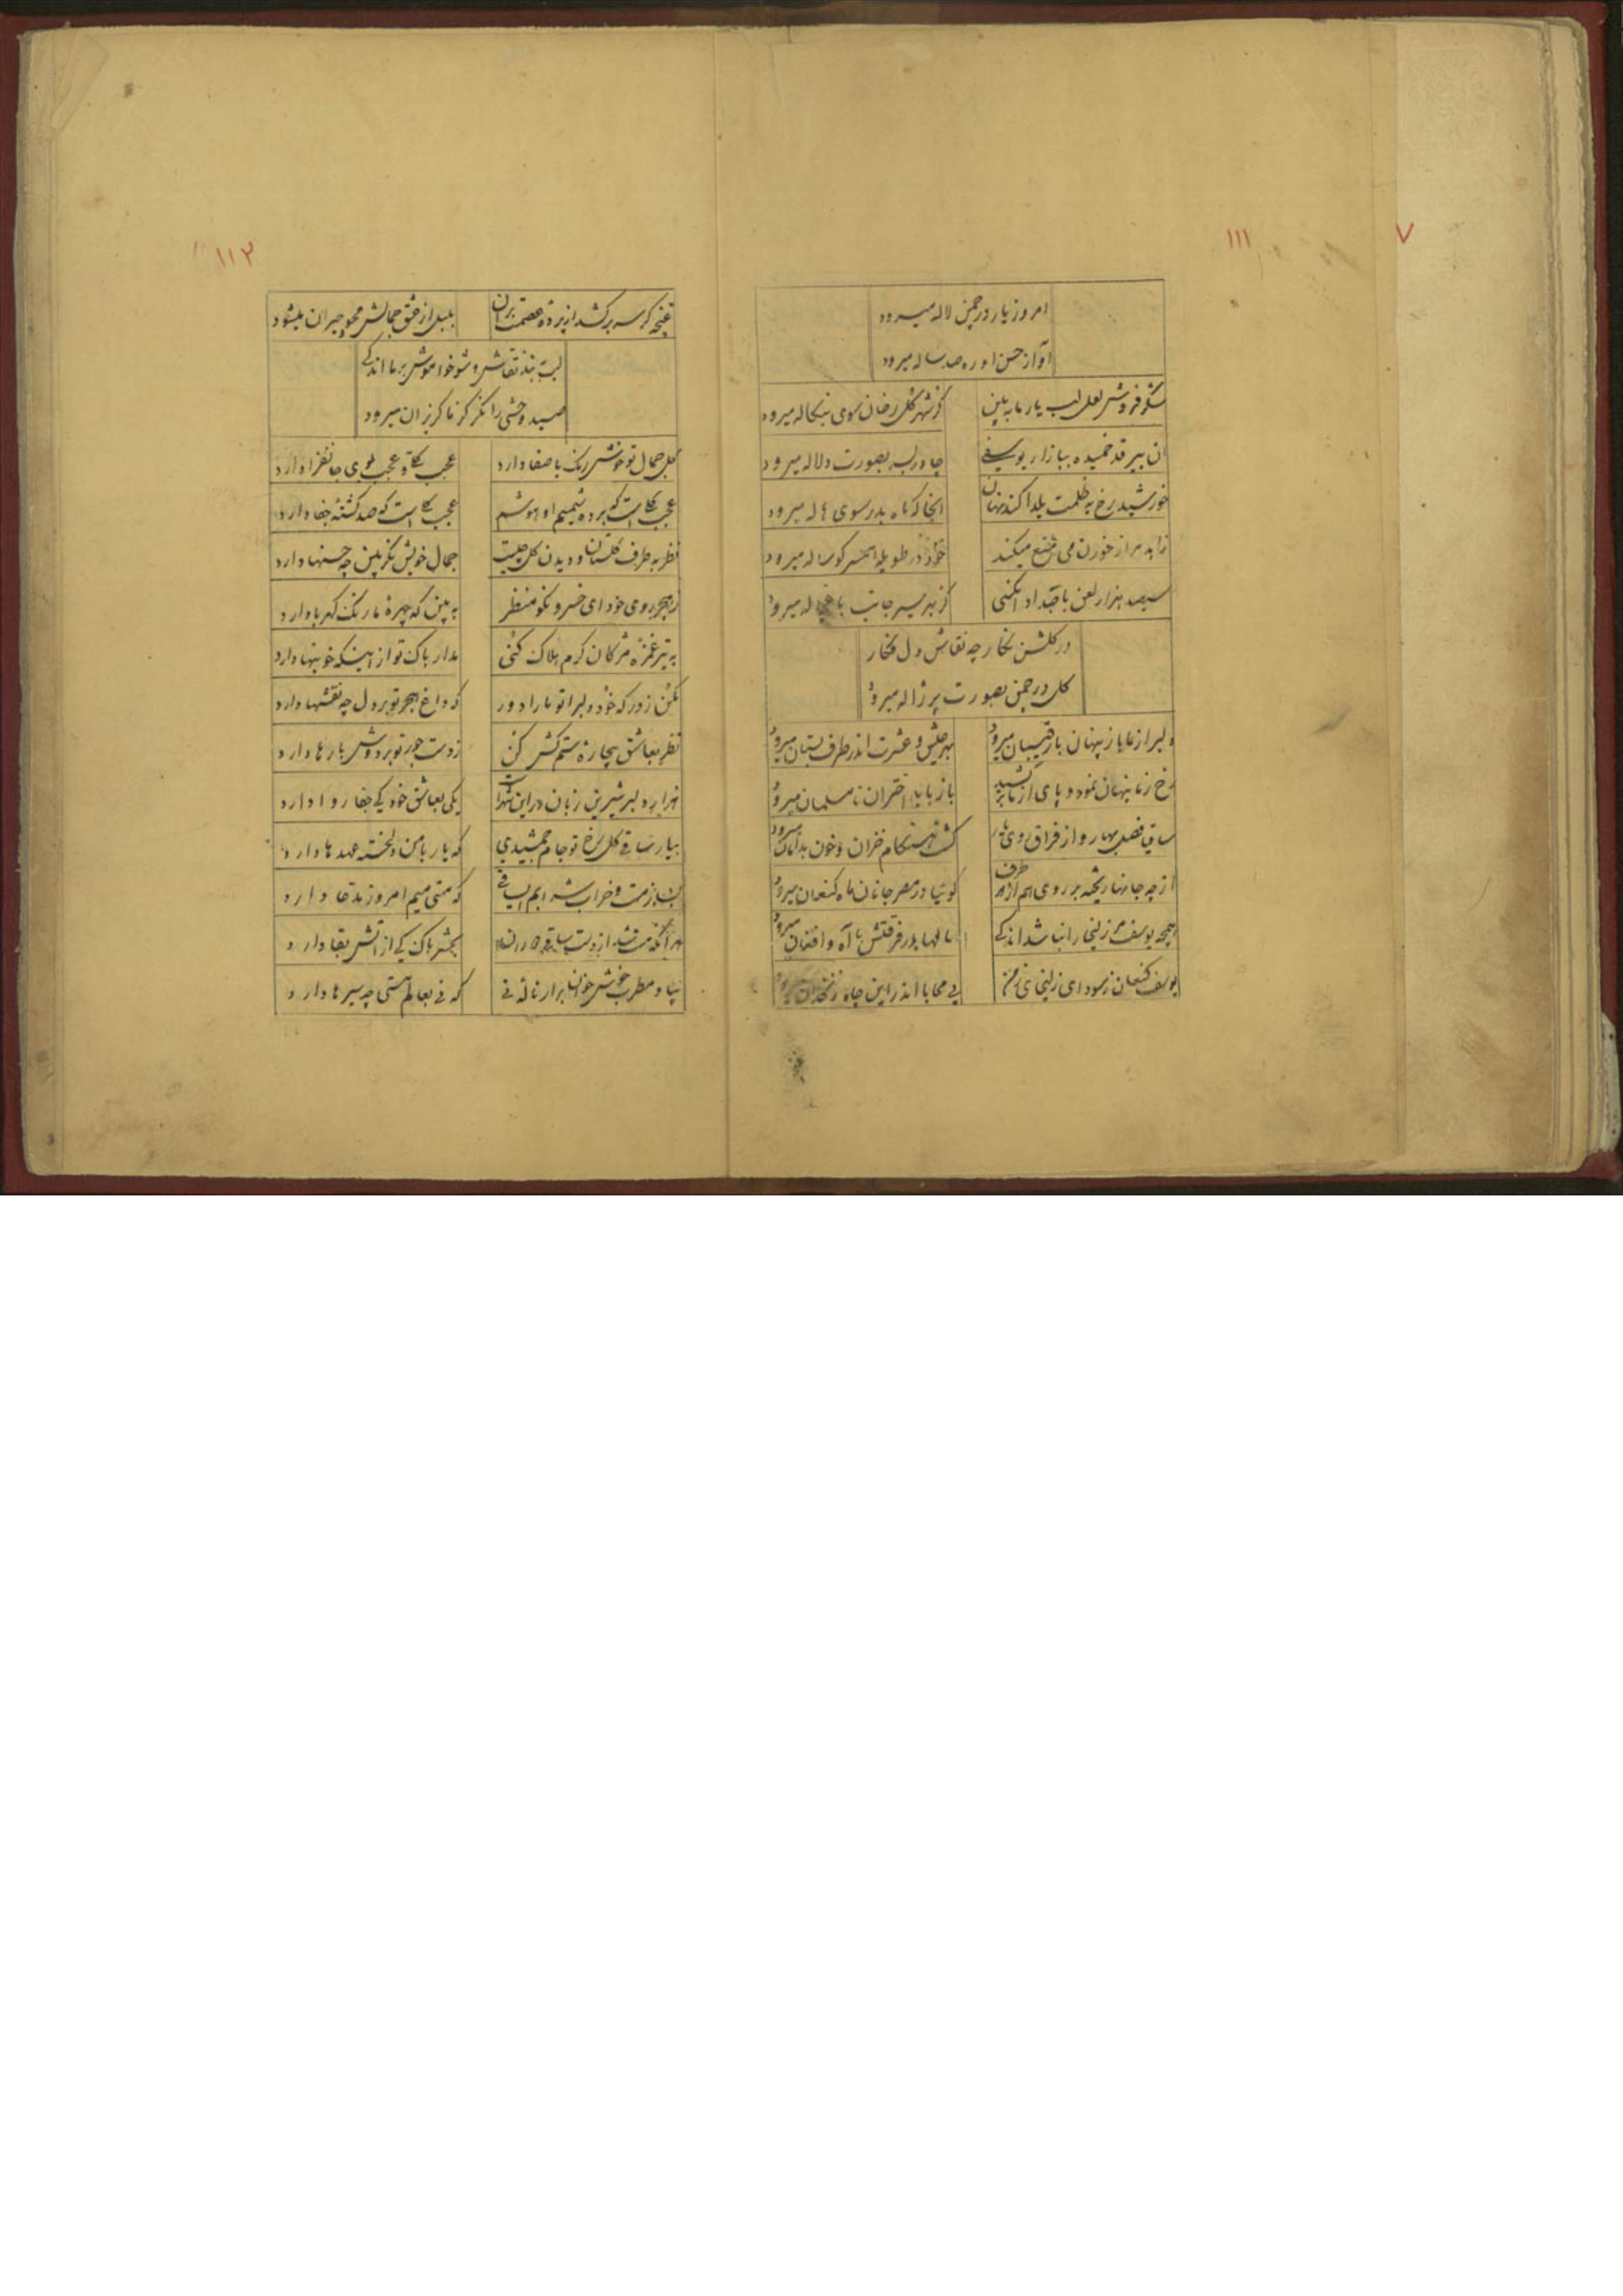 ۷
۱۱۱
امروز یار در چمن لاله میرود
آواز حسن او ره صد ساله میرود
شکر فروش لعل لب یار ما به بین
کز شهر گل رخان سوی بنکاله میرود
ان پیر قد خمیده ببازار یوسفی
چادر بسر بصورت دلاله میرود
خورشید رخ به ظلمت یلدا کند نهان
انجا که ماه بدر سوی هاله میرود
زاهد مرا ز خوردن می منع میکند
خود در طویله همسر کوساله میرود
سیصد هزار لعن باجداد انکسی
کز بهر سیر جانب میرود
در کلشن نکار چه نقاش دل فکار
کل در چمن بصورت پر ژاله میرود
دلبر از ما باز پنهان با رقیبان میرود
بهر عیش و عشرت اندر طرف بستان میرود
رخ ز ما پنهان نمود و پای از ما
باز با این اختران نامسلمان میرود
ساقی فصل بهار و از فراق روی
کشت هنکام خزان و خون بدامان میرود
از چه جانها ریخته بر روی هم از هر طرف
کوئیا در مصر جانان ماه کنعان میرود
همچه یوسف زلیخا را نباشد اندکی
سالها در فرقتش با آه و افغان میرود
یوسف کنعان ز سودای زلیخای زمن
بی محابا اندر این چاه زنخدان میرود
۱۱۲
غنچه کر سر برکشد از پرده عصمت بران
بلبل از عشق جمالش محو حیران میشود
لب به بند نقاش و شو خواموش بر ما اندکی
صید وحشی را نکر کز ما کریزان میرود
کل جمال تو خوش رنک با صفا دارد
عجب نکاه و عجب بوی جانفزا دارد
عجب نکاهست که برده شمیم او هوشم
عجب نکاهست که صد کشته جفا دارد
نظر به طرف کلستان و دیدن کل چیست
جمال خویش نکر بین چه حسنها دارد
ز هجر روی خود ای خسرو نکو منظر
به بین که چهره ما رنک کهربا دارد
به تیر غمزه مژکان کرم هلاک کنی
مدار باک تو از اینکه خونبها دارد
مکن ز در که خود دلبرا تو ما را دور
که داغ هجر تو بر دل چه نقشها دارد
نظر بعاشق بیچاره ستم کش کن
ز دست جور تو بر دوش بارها دارد
هزار دلبر شیرین زبان در این شهر است
یکی بعاشق خود کی جفا روا دارد
بیار ساقی کل رخ تو جام جمشیدی
که یار با من دلخسته عهدها دارد
مست و خراب شرابم ایساقی
که مستی میم امروز مدعا دارد
هر انکه مست شد از دست ساقی دوران
بحشر باک کی از اتش بقا دارد
بیا و مطرب خوش خوان برار ناله نی
که نی بعالم مستی چه سیرها دارد